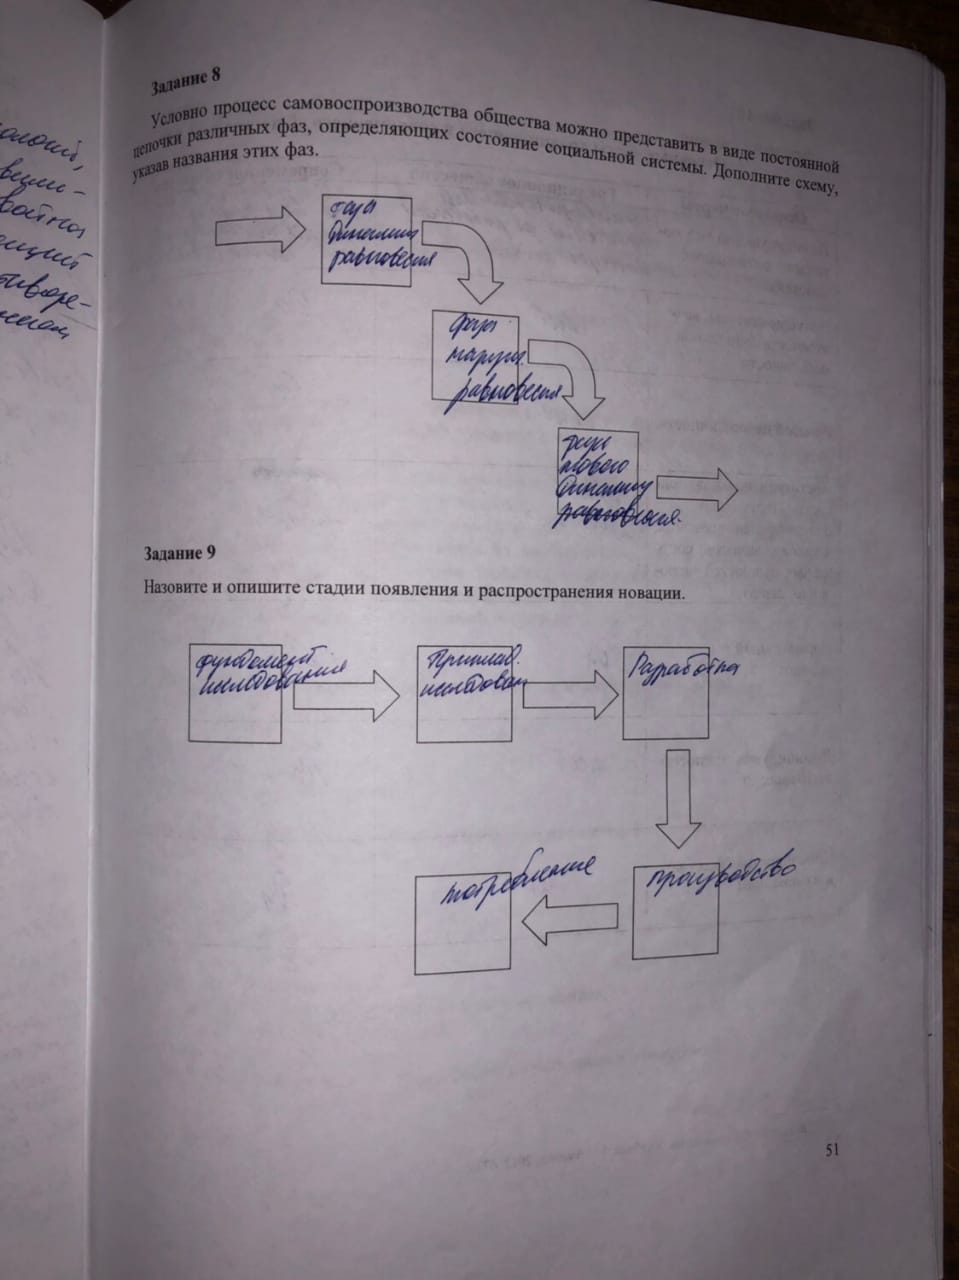 Задание 8
Условно процесс самовоспроизводства общества можно представить в виде постоянной
цепочки различных фаз, определяющих состояние социальной системы. Дополните схему,
указав названия этих фаз.
фаза
динамич
равновесия
фаза
наруш.
равновесия
фаза
нового
динамич
равновесия.
Задание 9
Назовите и опишите стадии появления и распространения новации.
фундамент
исследования
Приклад.
исследован
Разработка
потребление
производство
51